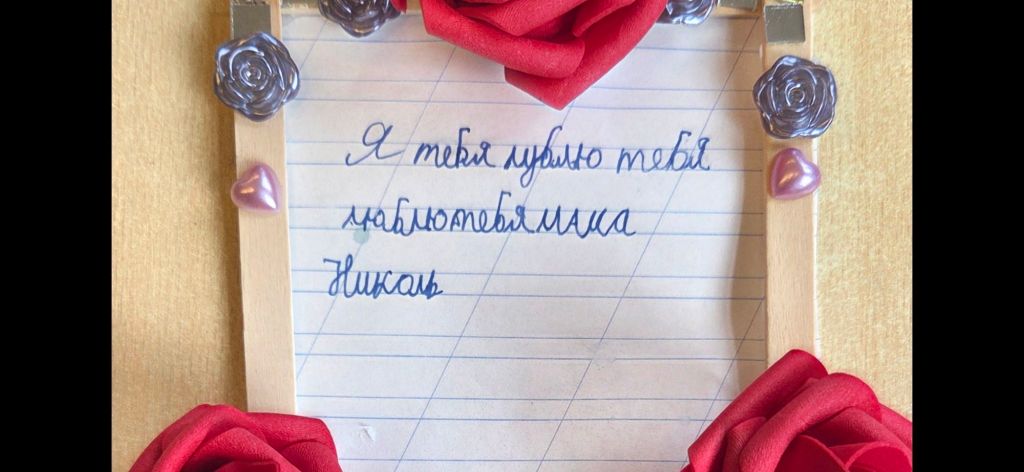 Я тебя лублю тебя
люблютебямама
Николь